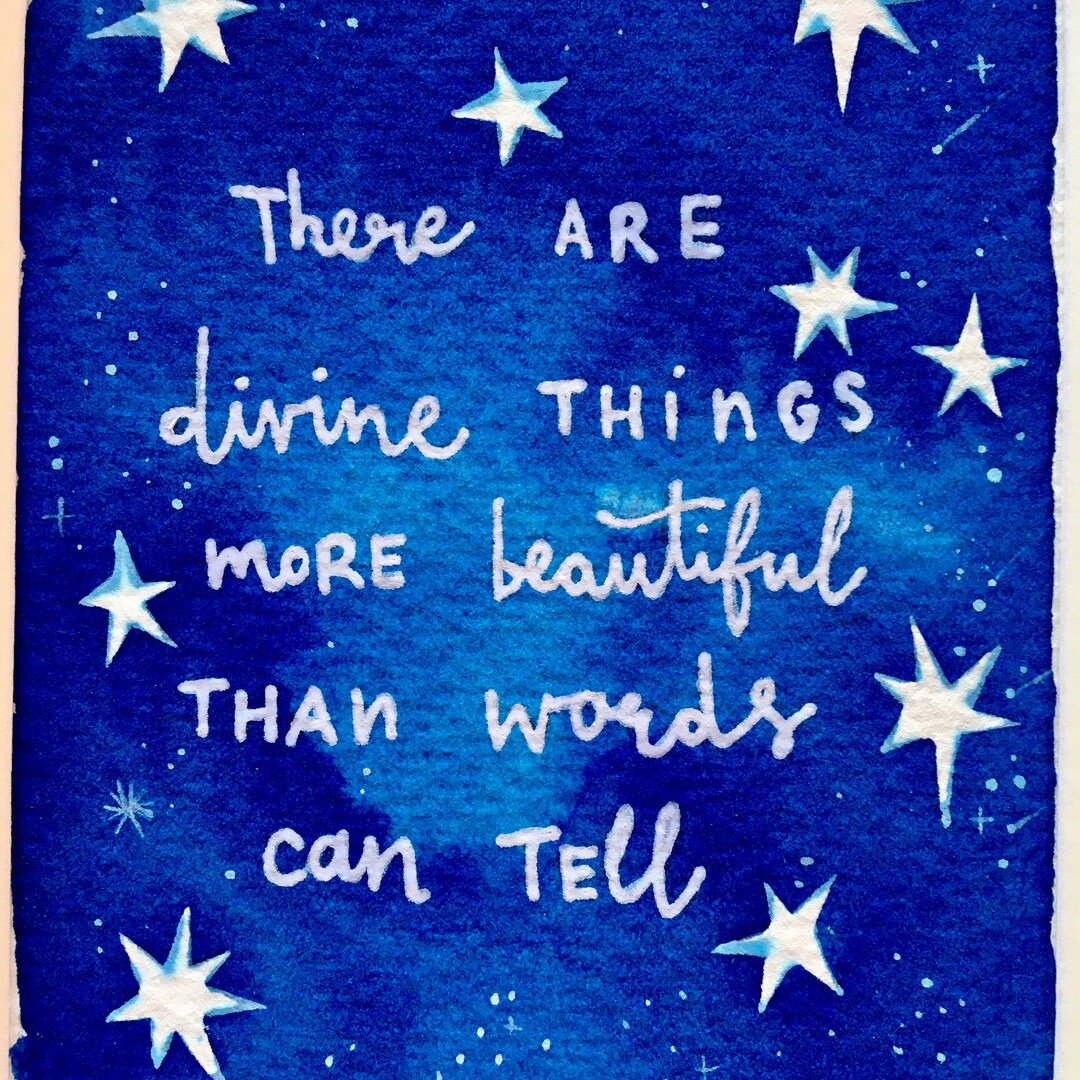 There ARE
divine THiNGS
MORE beautiful
THAN words
can TEll